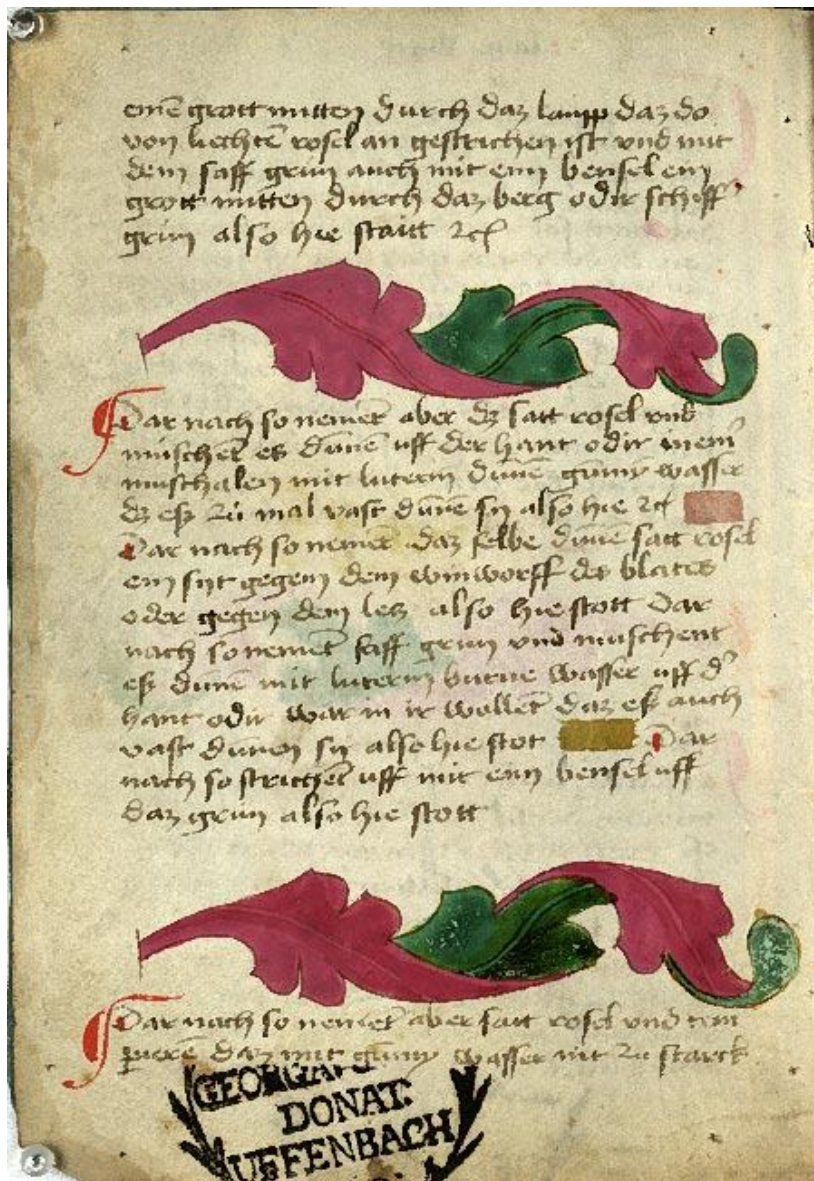 eine͂ grott mitten durch daz laupp daz do
von liechte͂ rosel an gestrichen ist vnd mit
dem saff grun auch mit eim bensel ein
grott mitten durch daz berg odir schiff
grun also hie staitt ꝛcꝭ
Dar nach so neme͂t aber dz satt rosel vnd
muschet es dune͂ uff der hant odir in ein͂
muschalen mit luterm dune͂ gumy wasser
dz esz zu mal vast dune͂ sy also hie ꝛcꝭ
Dar nach so neme͂t daz selbe dune͂ satt rosel
ein syt gegem dem winworff des blates
oder gegen dem lesz also hie stott Dar
nach so neme͂t saff grun vnd muschent
esz dune͂ mit luterm wasser uff d͛
hant odir war in ir wolle͂t daz esz auch
vast dunen sy also hie stot Dar
nach so striche͂t uff mit eim bensel uff
daz grun also hie stott
Dar nach so neme͂t aber satt rosel vnd tem
periere͂ daz mit gumy wasser nit zu starck
GEORG
DONAT:
UFFENBACH